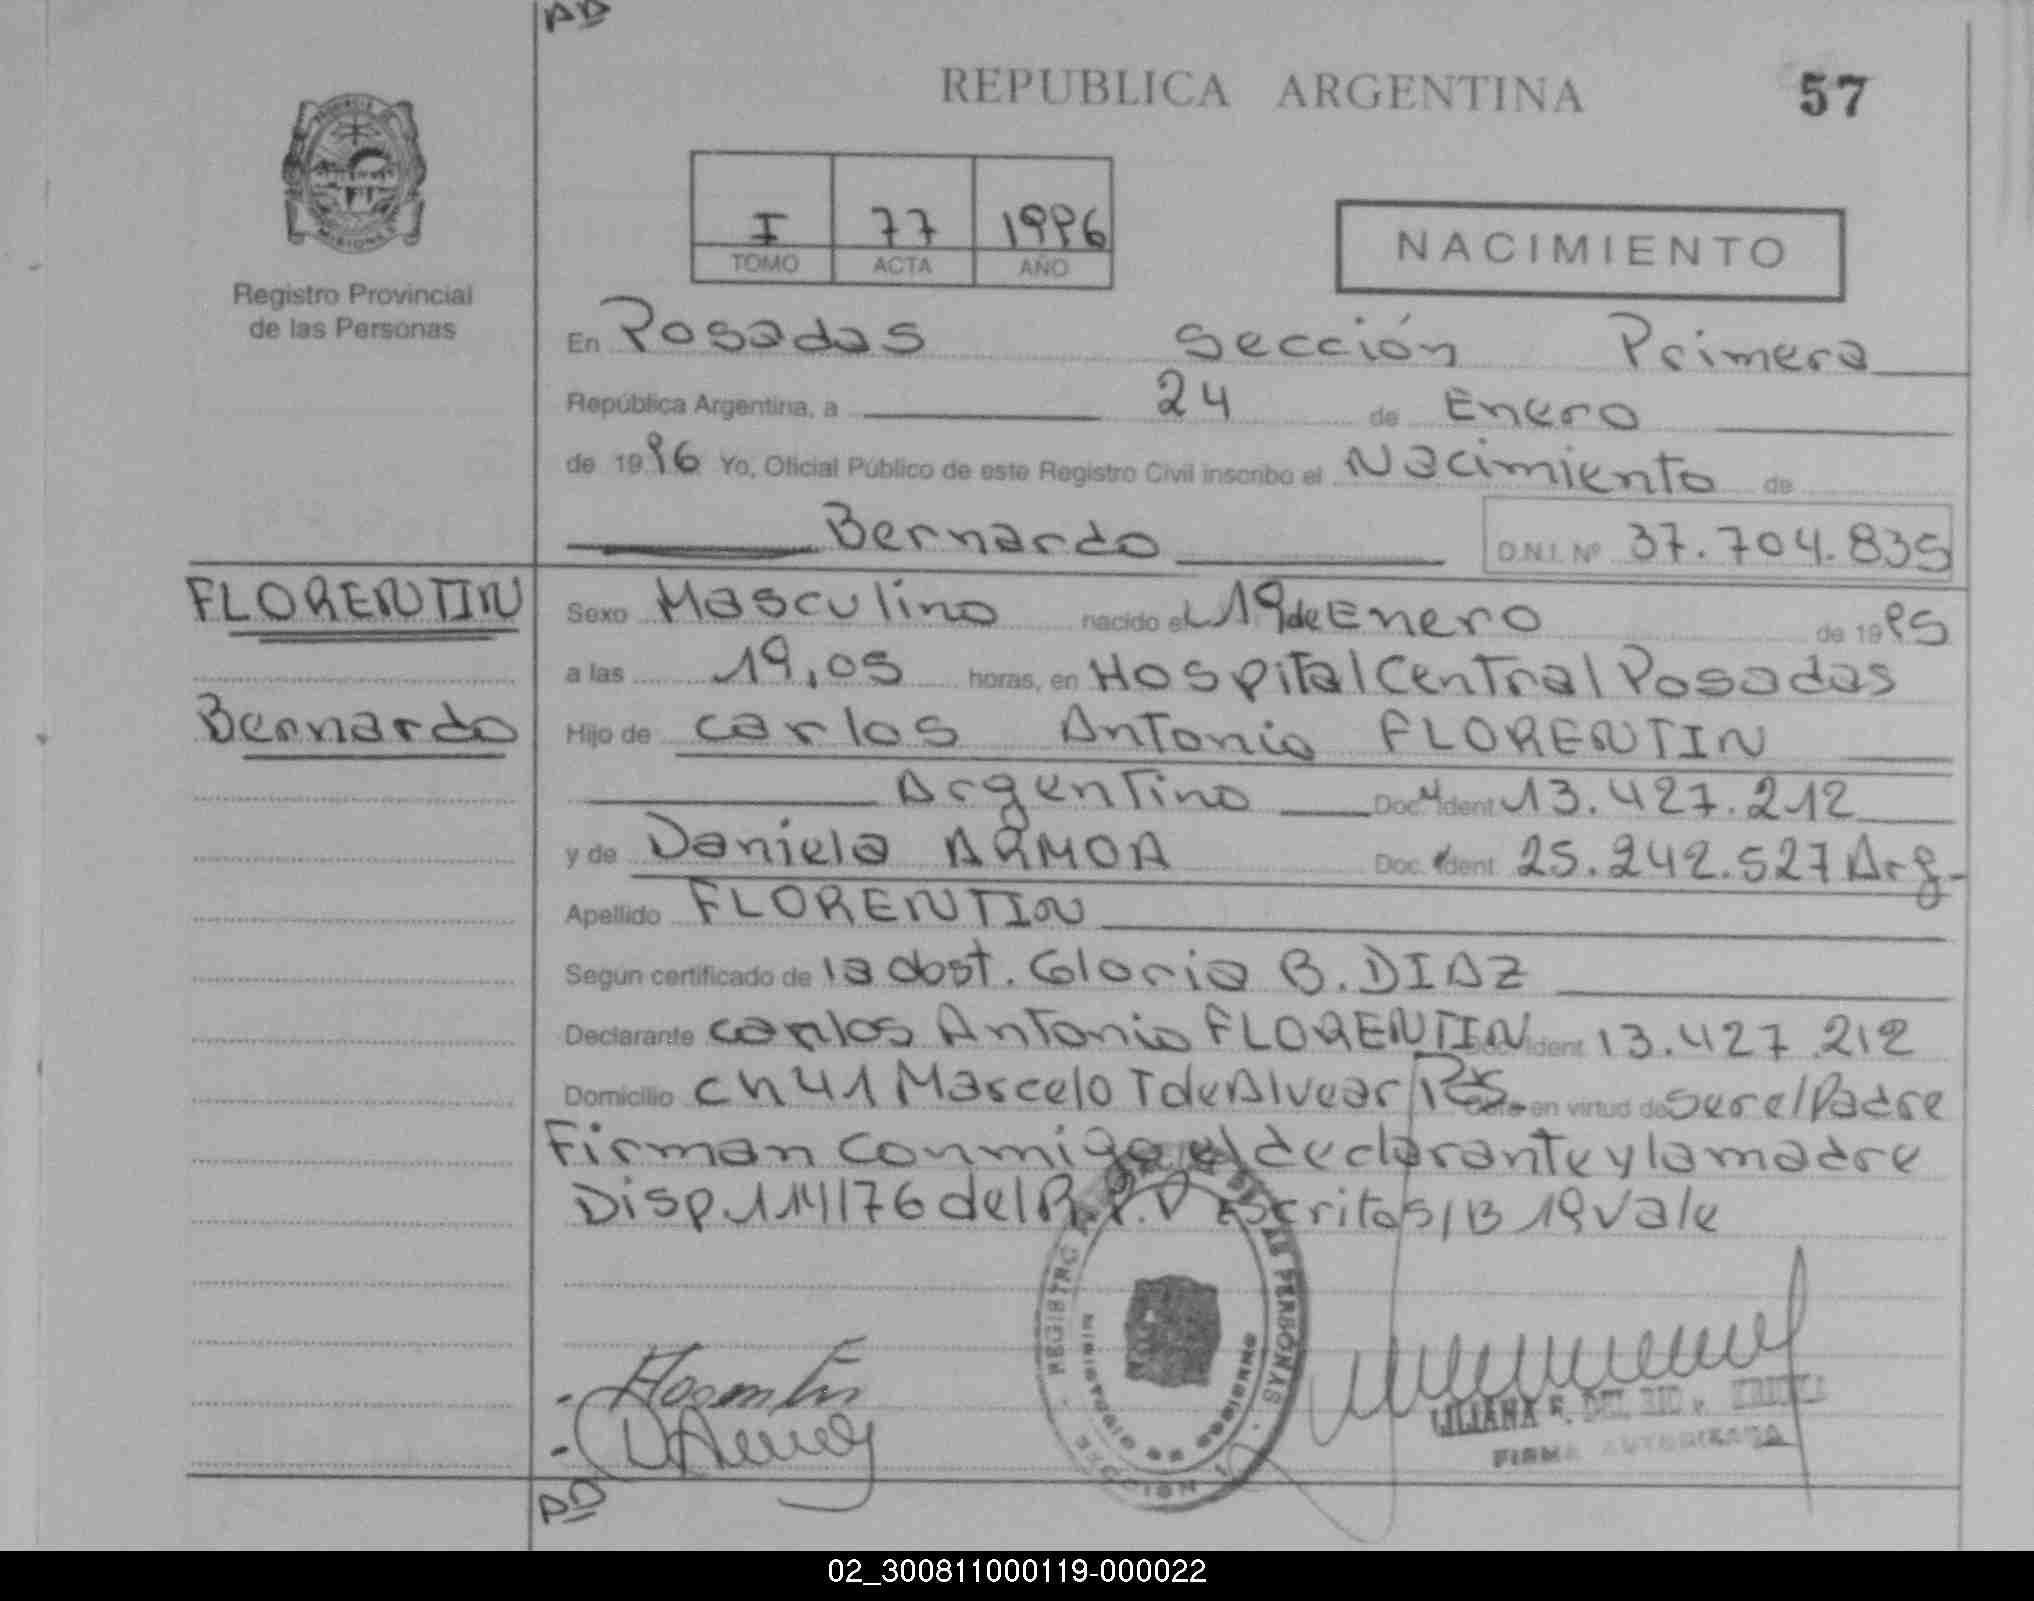 AD
REPUBLICA ARGENTINA 57
PROVINCIA
MISIONES
Registro Provincial
de las Personas
I 77 1996
TOMO ACTA AÑO
NACIMIENTO
En Posadas Sección Primera
República Argentina, a 24 de Enero
de 1996 Yo, Oficial Público de este Registro Civil inscribo el Nacimiento de
Bernardo D.N.I. Nº 37.704.835
FLORENTIN
Bernardo
Sexo Masculino nacido el 19 de Enero de 1995
a las 19,05 horas, en Hospital Central Posadas
Hijo de Carlos Antonio FLORENTIN
Argentino Doc. Ident 13.427.212
y de Daniela ARMOA Doc. Ident. 25.242.527 Arg.
Apellido FLORENTIN
Según certificado de la obst. Gloria B. DIAZ
Declarante Carlos Antonio FLORENTIN Doc. Ident 13.427.212
Domicilio ch 41 Marcelo T de Alvear Pds. en virtud de ser el Padre
Firman conmigo el declarante y la madre
Disp. 114/76 del R.P.P Escritos/B 19 Vale
REGISTRO DE LAS PERSONAS
MINISTERIO DE GOBIERNO
SECCION 1
LILIANA F. DEL RIO
FIRMA AUTORIZADA
AD
02_300811000119-000022